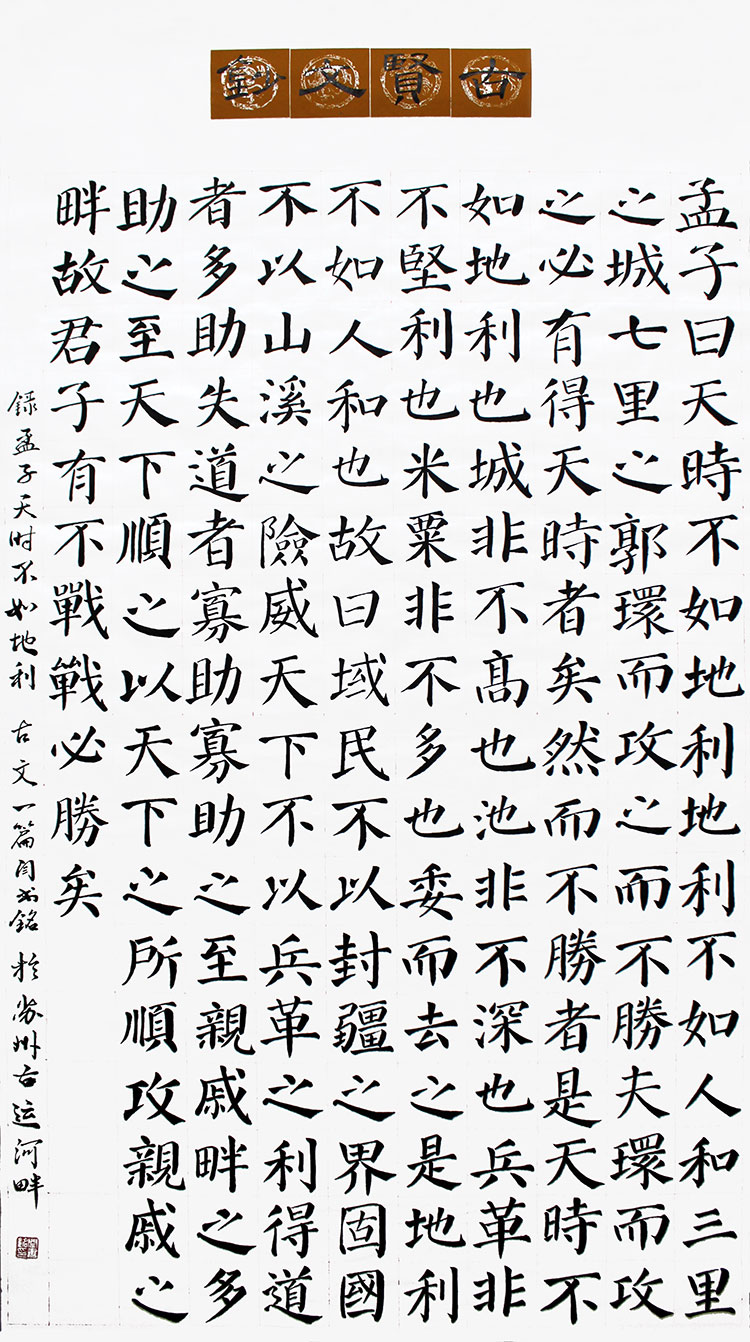 古賢文鈔
孟子曰天時不如地利地利不如人和三里
之城七里之郭環而攻之而不勝夫環而攻
之必有得天時者矣然而不勝者是天時不
如地利也城非不髙也池非不深也兵革非
不堅利也米粟非不多也委而去之是地利
不如人和也故曰域民不以封疆之界固國
不以山溪之險威天下不以兵革之利得道
者多助失道者寡助寡助之至親戚畔之多
助之至天下順之以天下之所順攻親戚之
畔故君子有不戰戰必勝矣
録孟子天时不如地利 古文一篇 书銘 於苏州古运河畔